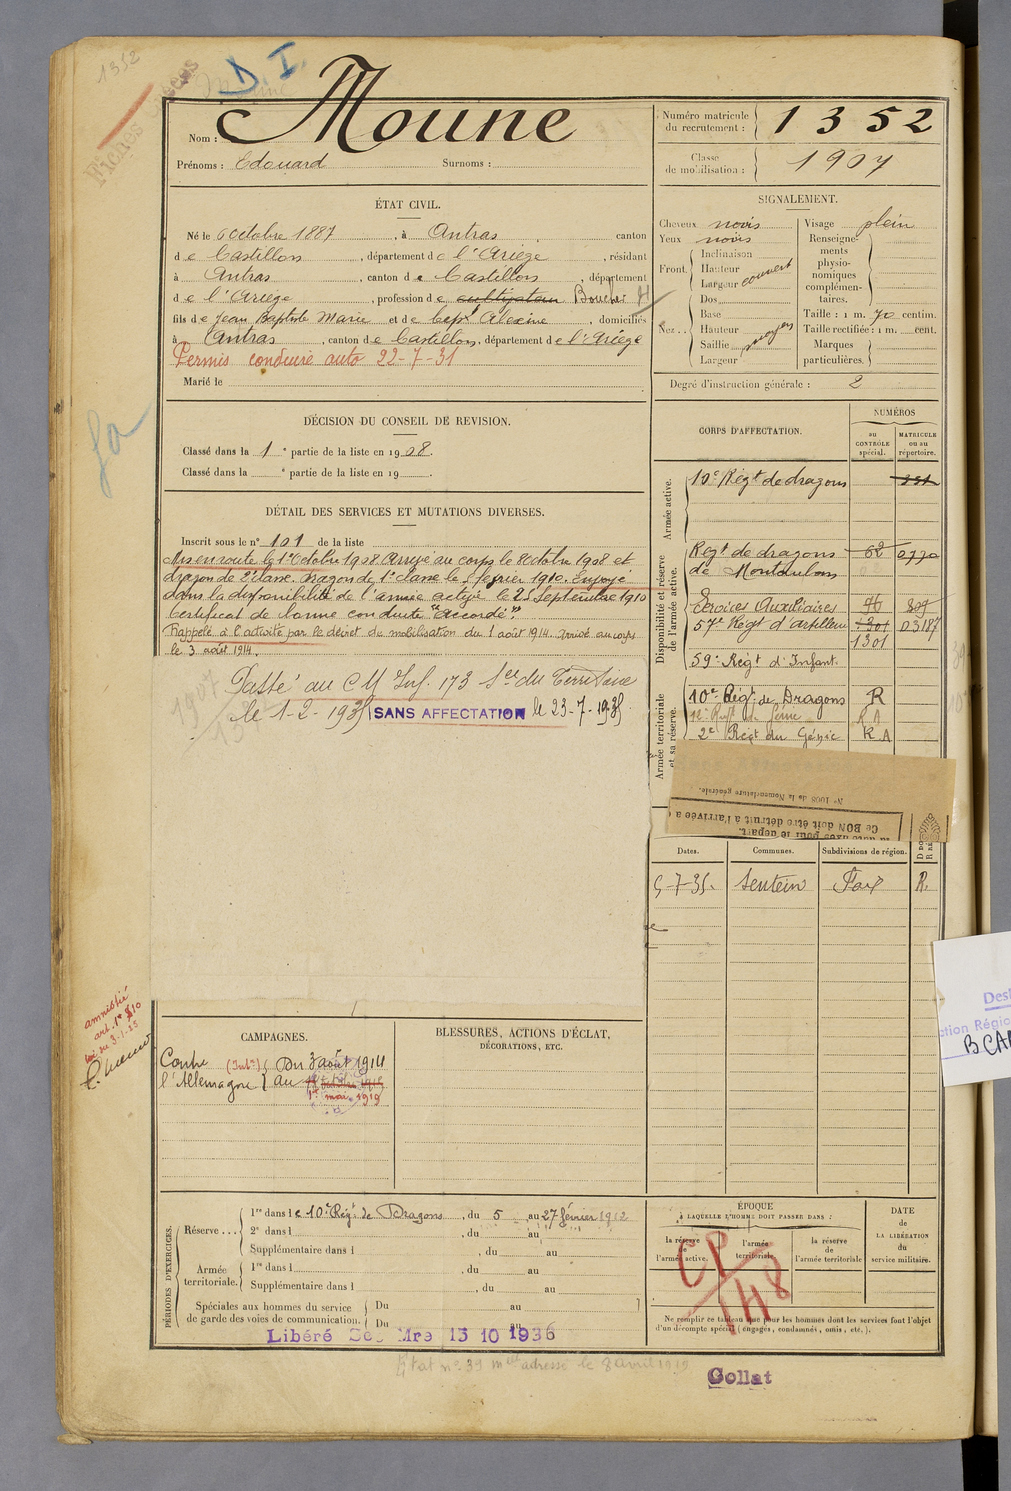 1352
D. I.
Moune
Fiches
Nom : Moune
Prénoms : Edouard Surnoms :
Numéro matricule du recrutement : 1352
Classe de mobilisation : 1907
ÉTAT CIVIL.
Né le 6 Octobre 1887, à Antras, canton
de Castillon, département de l'Ariège, résidant
à Antras, canton de Castillon département
de l'Ariège, profession de cultivateur Boucher
fils de Jean Baptiste Marie et de Alexine, domiciliés
à Antras, canton de Castillon, département de l'Ariège
Permis conduire auto 22-7-31
Marié le
SIGNALEMENT.
Cheveux noirs
Yeux noirs
Front. Inclinaison
Hauteur
Largeur couvert
Nez.. Dos
Base
Hauteur
Saillie moyen
Largeur
Visage plein
Renseignements physionomiques complémentaires.
Taille : 1 m. 70 centim.
Taille rectifiée : 1 m. cent.
Marques particulières.
Degré d'instruction générale : 2
DÉCISION DU CONSEIL DE REVISION.
Classé dans la 1e partie de la liste en 1908.
Classé dans la e partie de la liste en 19 .
DÉTAIL DES SERVICES ET MUTATIONS DIVERSES.
Inscrit sous le n° 101 de la liste
Mis en route le 1er Octobre 1908. Arrivé au corps le 8 Octobre 1908 et
dragon de 2e classe. Dragon de 1e classe le février 1910. Envoyé
dans la disponibilité de l'armée active le 25 Septembre 1910
Certificat de bonne conduite "Accordé".
Rappelé à l'activité par le décret de mobilisation du 1 août 1914. Arrivé au corps
le 3 août 1914.
Passé au C M Inf. 173 Son du Territoire
le 1-2-1935 SANS AFFECTATION le 23-7-1935
CORPS D'AFFECTATION.
NUMÉROS
au CONTRÔLE spécial.
MATRICULE ou au répertoire.
Armée active.
10e Régt de dragons 251
Disponibilité et réserve de l'armée active.
Régt de dragons 62 0770
de Montauban
Services Auxiliaires 96 809
57e Régt d'artillerie 1301 03187
1301
59e Régt d'Infant.
Armée territoriale et sa réserve.
10e Régt de Dragons R
Régt du Génie RA
2e Régt du Génie RA
N° 1008 de la Nomenclature générale.
Ce BON doit être détruit à l'arrivée à
pour le départ.
Dates. Communes. Subdivisions de région.
5-7-35. Sentein Foix R.
amnistié
art. 1er
loi du 3-1-25
CAMPAGNES.
Contre l'Allemagne (Intr) Du 3 août 1914
au
1er mai 1919
BLESSURES, ACTIONS D'ÉCLAT,
DÉCORATIONS, ETC.
PÉRIODES D'EXERCICES.
Réserve... 1re dans le 10e Régt de Dragons, du 5 au 27 février 1912
2e dans l , du au
Supplémentaire dans l , du au
Armée territoriale. 1re dans l , du au
Supplémentaire dans l , du au
Spéciales aux hommes du service de garde des voies de communication. Du au
Du au
ÉPOQUE
À LAQUELLE L'HOMME DOIT PASSER DANS :
la réserve de l'armée active.
l'armée territoriale.
la réserve de l'armée territoriale
DATE
de
LA LIBÉRATION
du
service militaire.
CP
148
Ne remplir ce tableau que pour les hommes dont les services font l'objet
d'un décompte spécial (engagés, condamnés, omis, etc.).
Libéré Mre 15 10 1936
Etat n° 39 adressé le 8 avril 1919
Gollat
Dest
ction Régio
B CAI